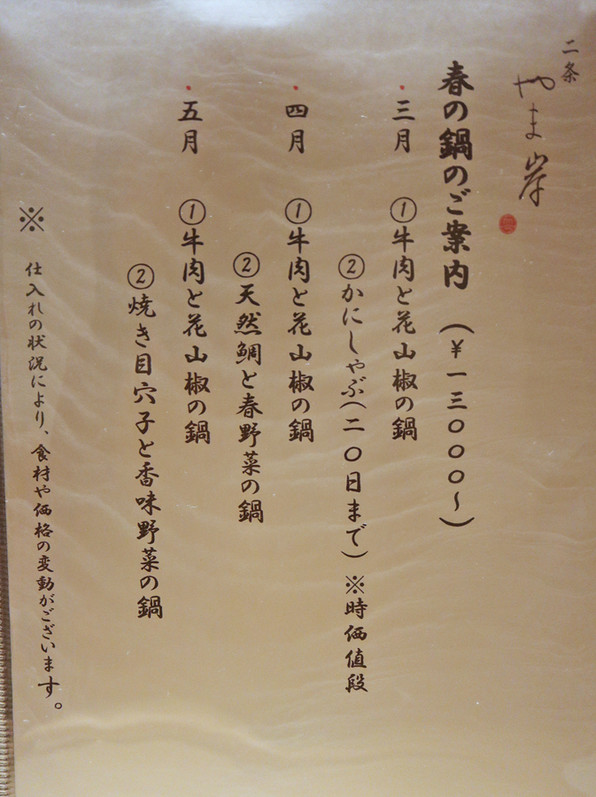 二条
やま岸
春の鍋のご案内（￥一三〇〇〇～）
三月 ①牛肉と花山椒の鍋
②かにしゃぶ（二〇日まで）※時価値段
四月 ①牛肉と花山椒の鍋
②天然鯛と春野菜の鍋
五月 ①牛肉と花山椒の鍋
②焼き目穴子と香味野菜の鍋
※ 仕入れの状況により、食材や価格の変動がございます。